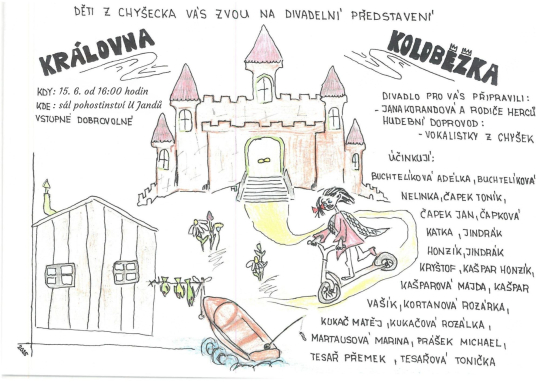 DĚTI Z CHYŠECKA VÁS ZVOU NA DIVADELNÍ PŘEDSTAVENÍ
KRÁLOVNA
KOLOBĚŽKA
KDY: 15. 6. od 16:00 hodin
KDE: sál pohostinství U Jandů
VSTUPNÉ DOBROVOLNÉ
DIVADLO PRO VÁS PŘIPRAVILI:
- JANA KORANDOVÁ A RODIČE HERCŮ
HUDEBNÍ DOPROVOD:
- VOKALISTKY Z CHYŠEK
ÚČINKUJÍ:
BUCHTELÍKOVÁ ADÉLKA, BUCHTELÍKOVÁ
NELINKA, ČAPEK TONÍK,
ČAPEK JAN, ČÁPKOVÁ
KATKA, JINDRÁK
HONZÍK, JINDRÁK
KRYŠTOF, KAŠPAR HONZÍK,
KAŠPAROVÁ MAJDA, KAŠPAR
VAŠÍK, KORTANOVÁ ROZÁRKA,
KUKAČ MATĚJ, KUKAČOVÁ ROZÁLKA,
MARTAUSOVÁ MARINA, PRÁŠEK MICHAEL,
TESAŘ PŘEMEK, TESAŘOVÁ TONIČKA